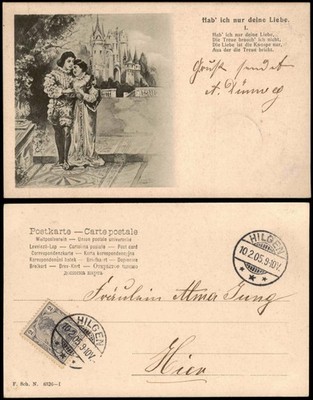 Hab' ich nur deine Liebe.
1.
Hab' ich nur deine Liebe,
Die Treue brauch' ich nicht,
Die Liebe ist die Knospe nur,
Aus der die Treue bricht.
Gruß sendet
A.
Postkarte — Carte postale
Weltpostverein — Union postale universelle
Levelező-Lap — Cartolina postale — Post card
Correspondenzkarte — Karta korespondencyjna
Korespondenční lístek — Briefkaart — Dopisnice
Brefkort — Brev-Kort — Открытое письмо
HILGEN
10.2.05. 9-10V.
Fräulein Alma Jung
HILGEN
10.2.05. 9-10V.
Hier
F. Sch. N. 4826-1